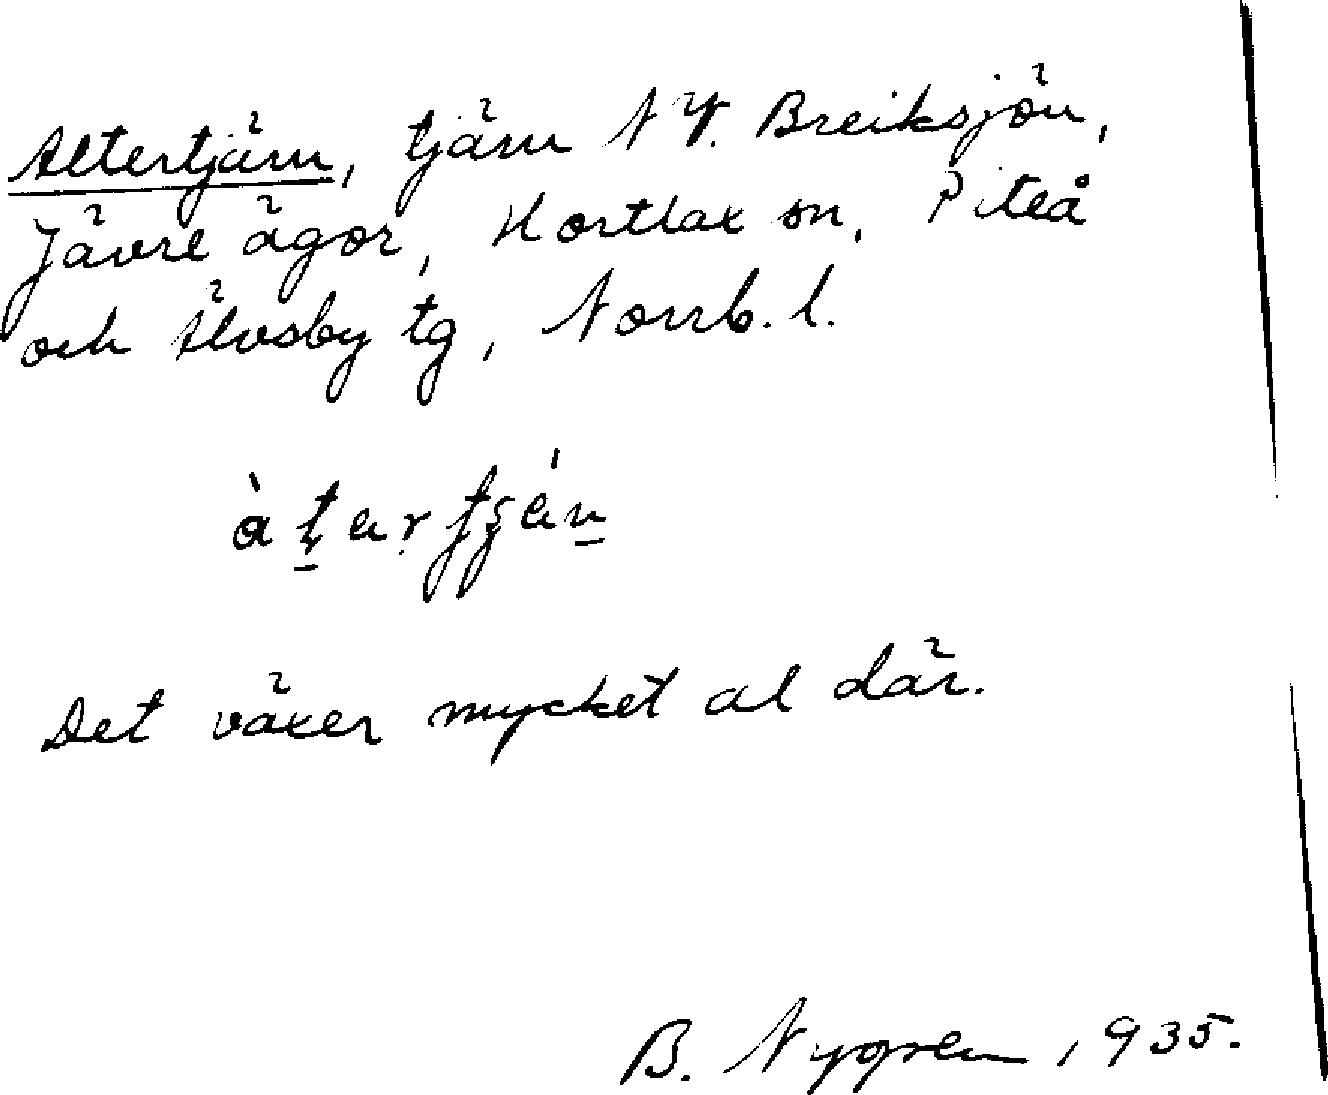 Altertjärn, tjärn N V. Breiksjön,
Jävre ägor, Hortlax sn, Piteå
och Älvsby tg, Norrb. l.
Det växer mycket al där.
B. Nygren 1935.